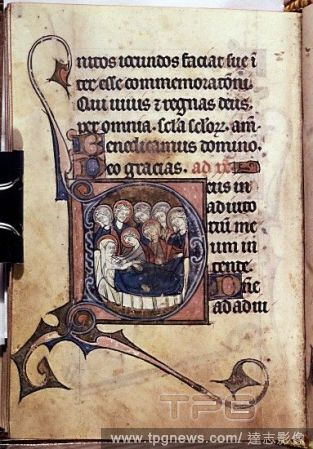 nitos iocundos faciat sue i
ter esse commemoratōni.
Qui uiuis & regnas deus.
per omnia. scła selor. am̄.
Benedicamus domino.
Deo gracias. ad
Deus in
adiuto
rium me
um in
tende.
Dn̄e
ad adiu
TPG
www.tpgnews.com/ 達志影像